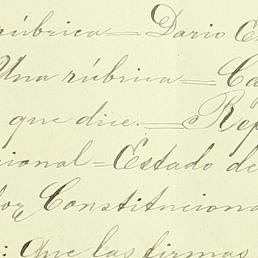 rúbrica = Dario E
Una rúbrica = Ca
que dice. = Rep
cional = Estado de
or Constitucional
: Que las firmas